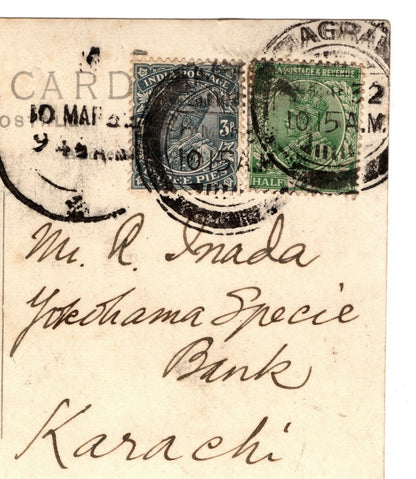 CARD
AGRA
10 MAR
9 45 A.M.
INDIA POSTAGE
3
PIES
10.15 A
POSTAGE & REVENUE
10.15 A.M.
HALF
Mr. R. Inada
Yokohama Specie
Bank
Karachi